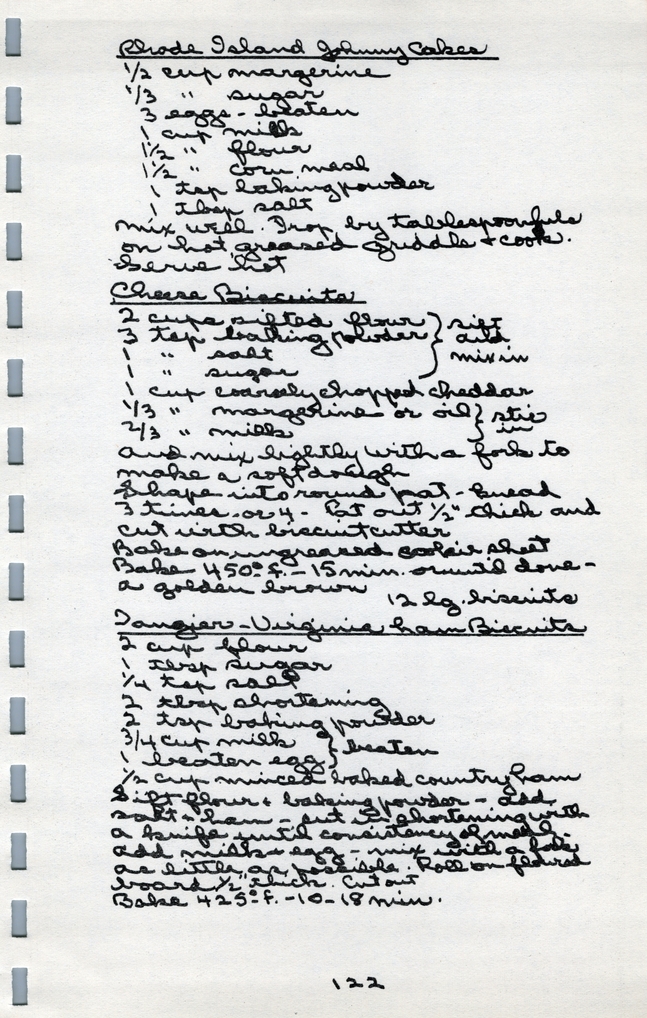 Rhode Island Johnny Cakes
1/2 cup margerine
1/3 " sugar
3 eggs - beaten
1 cup milk
1 1/2 " flour
1 1/2 " corn meal
1 tsp baking powder
1 tbsp salt
mix well. Drop by tablespoonfuls
on hot greased griddle + cook.
Serve hot
Cheese Biscuits
2 cups sifted flour } sift
3 tsp baking powder } and
1 " salt } mix in
1 " sugar
1 cup coarsely chopped cheddar
1/3 " margerine or oil } stir
2/3 " milk } in
and mix lightly with a fork to
make a soft dough
Shape into round pat - knead
3 times or 4 - Pat out 1/2" thick and
cut with biscuit cutter
Bake on ungreased cookie sheet
Bake 450° f. - 15 min. or until done -
a golden brown
12 lg. biscuits
Tangier - Virginia Ham Biscuits
2 cup flour
1 tbsp sugar
1/4 tsp salt
2 tbsp shortening
2 tsp baking powder
3/4 cup milk } beaten
1 beaten egg }
1/2 cup minced baked country ham
Sift flour + baking powder - add
salt + ham - cut in shortening with
a knife until consistency of meal -
add milk + egg - mix with a fork
as little as possible. Roll on floured
board 1/2" thick. Cut out
Bake 425° f. - 10 - 18 min.
122